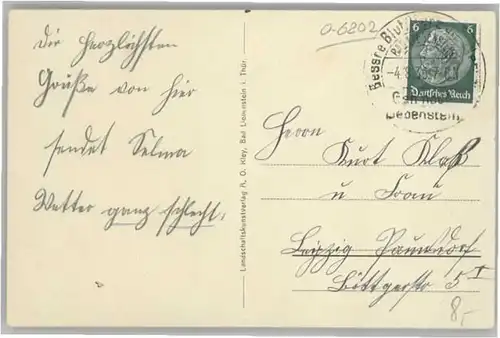 Die herzlichsten
Grüße von hier
sendet Selma
Wetter ganz schlecht.
Landschaftskunstverlag R. O. Kley, Bad Liebenstein i. Thür.
0-6802
Bessre Blut
6 6
Deutsches Reich
Liebenstein
Herrn
Kurt Klaß
u Frau
Leipzig Paunsdorf
Böttgerstr 5 I
8,-